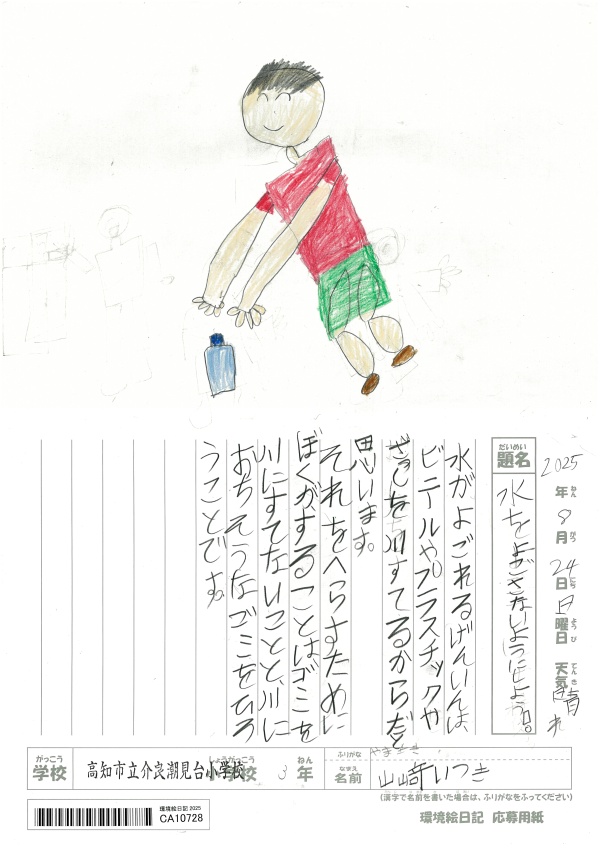 2025年8月24日日曜日 天気晴れ
ねん がつ にち ようび てんき
だいめい
題名
水をよごさないようにしよう。
水がよごれるげんいんは、
ビニールやプラスチックや
ざっしを川すてるからだと
思います。
それをへらすために
ぼくがすることはゴミを
川にすてないことと、川に
おちそうなゴミをひろ
うことです。
がっこう
学校
高知市立介良潮見台小学校
しょうがっこう
小学校
3年
ねん
ふりがな
やまさき
なまえ
名前
山﨑いつき
(漢字で名前を書いた場合は、ふりがなをふってください)
環境絵日記 2025
CA10728
環境絵日記 応募用紙